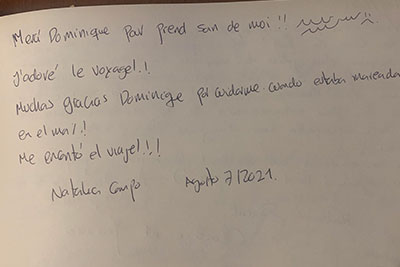 Merci Dominique pour prend soin de moi!!
J'adoré le voyage!.!
Muchas gracias Dominique por cuidarme cuando estaba mareada
en el mar.!
Me encantó el viaje!.!.!
Natalia Campo Agosto 7/2021.